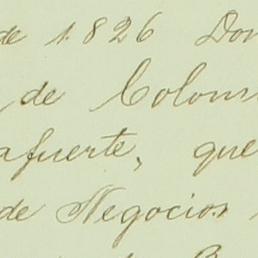 de 1826 Don
de Colom
afuerte, que
de Negocios